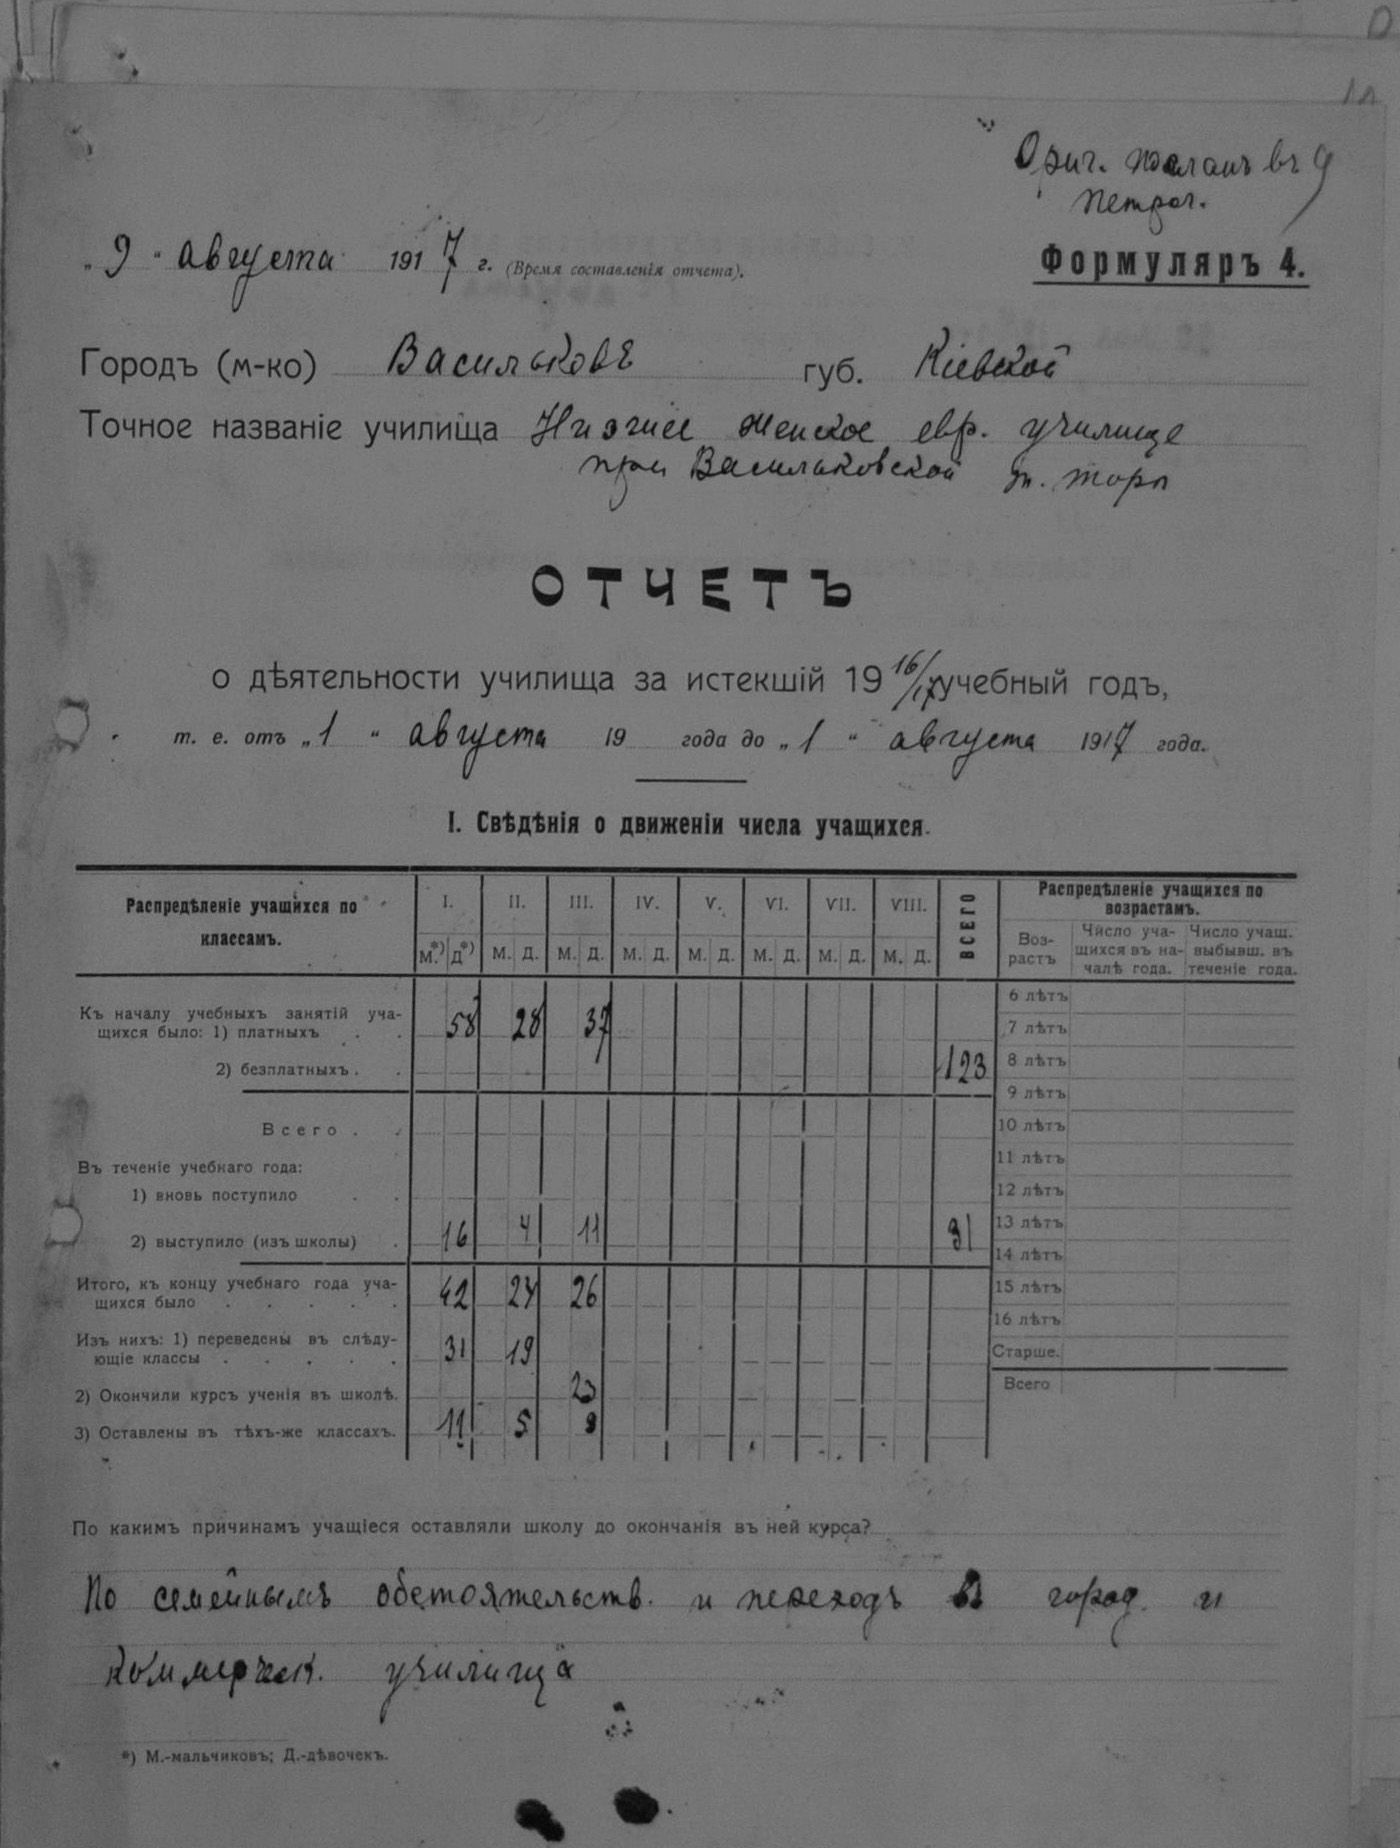 1л
Ориг. послан въ
Петрог.
„9“ августа 1917 г. (Время составленія отчета).
Формуляръ 4.
Городъ (м-ко) Васильковъ губ. Кіевской
Точное названіе училища Низшее женское евр. училище
при Васильковской т. торы
ОТЧЕТЪ
о дѣятельности училища за истекшій 1916/17 учебный годъ,
т. е. отъ „1“ августа 19 года до „1“ августа 1917 года.
I. Свѣдѣнія о движеніи числа учащихся.
Распредѣленіе учащихся по классамъ. I. II. III. IV. V. VI. VII. VIII. ВСЕГО
М.*) Д*) М. Д. М. Д. М. Д. М. Д. М. Д. М. Д. М. Д.
Къ началу учебныхъ занятій уча-
щихся было: 1) платныхъ . . 58 28 37
2) безплатныхъ . . 123
Всего . .
Въ теченіе учебнаго года:
1) вновь поступило . .
2) выступило (изъ школы) . 16 4 11 31
Итого, къ концу учебнаго года уча-
щихся было . . . . . 42 24 26
Изъ нихъ: 1) переведены въ слѣду-
ющіе классы . . . . . 31 19
2) Окончили курсъ ученія въ школѣ. 23
3) Оставлены въ тѣхъ-же классахъ. 11 5
Распредѣленіе учащихся по
возрастамъ.
Воз-
растъ
Число уча-
щихся въ на-
чалѣ года.
Число учащ.
выбывш. въ
теченіе года.
6 лѣтъ
7 лѣтъ
8 лѣтъ
9 лѣтъ
10 лѣтъ
11 лѣтъ
12 лѣтъ
13 лѣтъ
14 лѣтъ
15 лѣтъ
16 лѣтъ
Старше.
Всего
По какимъ причинамъ учащіеся оставляли школу до окончанія въ ней курса?
По семейнымъ обстоятельств. и переходъ въ город. и
коммерческ. училища
*) М.-мальчиковъ; Д.-дѣвочекъ.